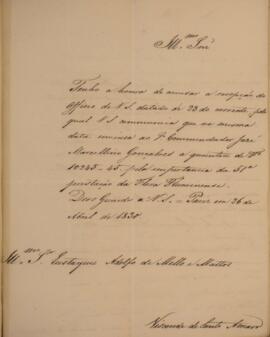 Ill.mo Snr.
Tenho a honra de accusar a recepção do
Officio de V.S. datado de 23 do corrente, pelo
qual V.S. communica que na mesma
data remetteu ao Commendador José
Marcellino Gonçalves a quantia de
10243-45 pela importancia da 31ª
prestação da Fluminense
Deos Guarde a V.S. - Paris em 26 de
Abril de 1830.
Ill.mo Snr. Eustaquio Adolfo de Mello e Mattos
Visconde de Santo Amaro